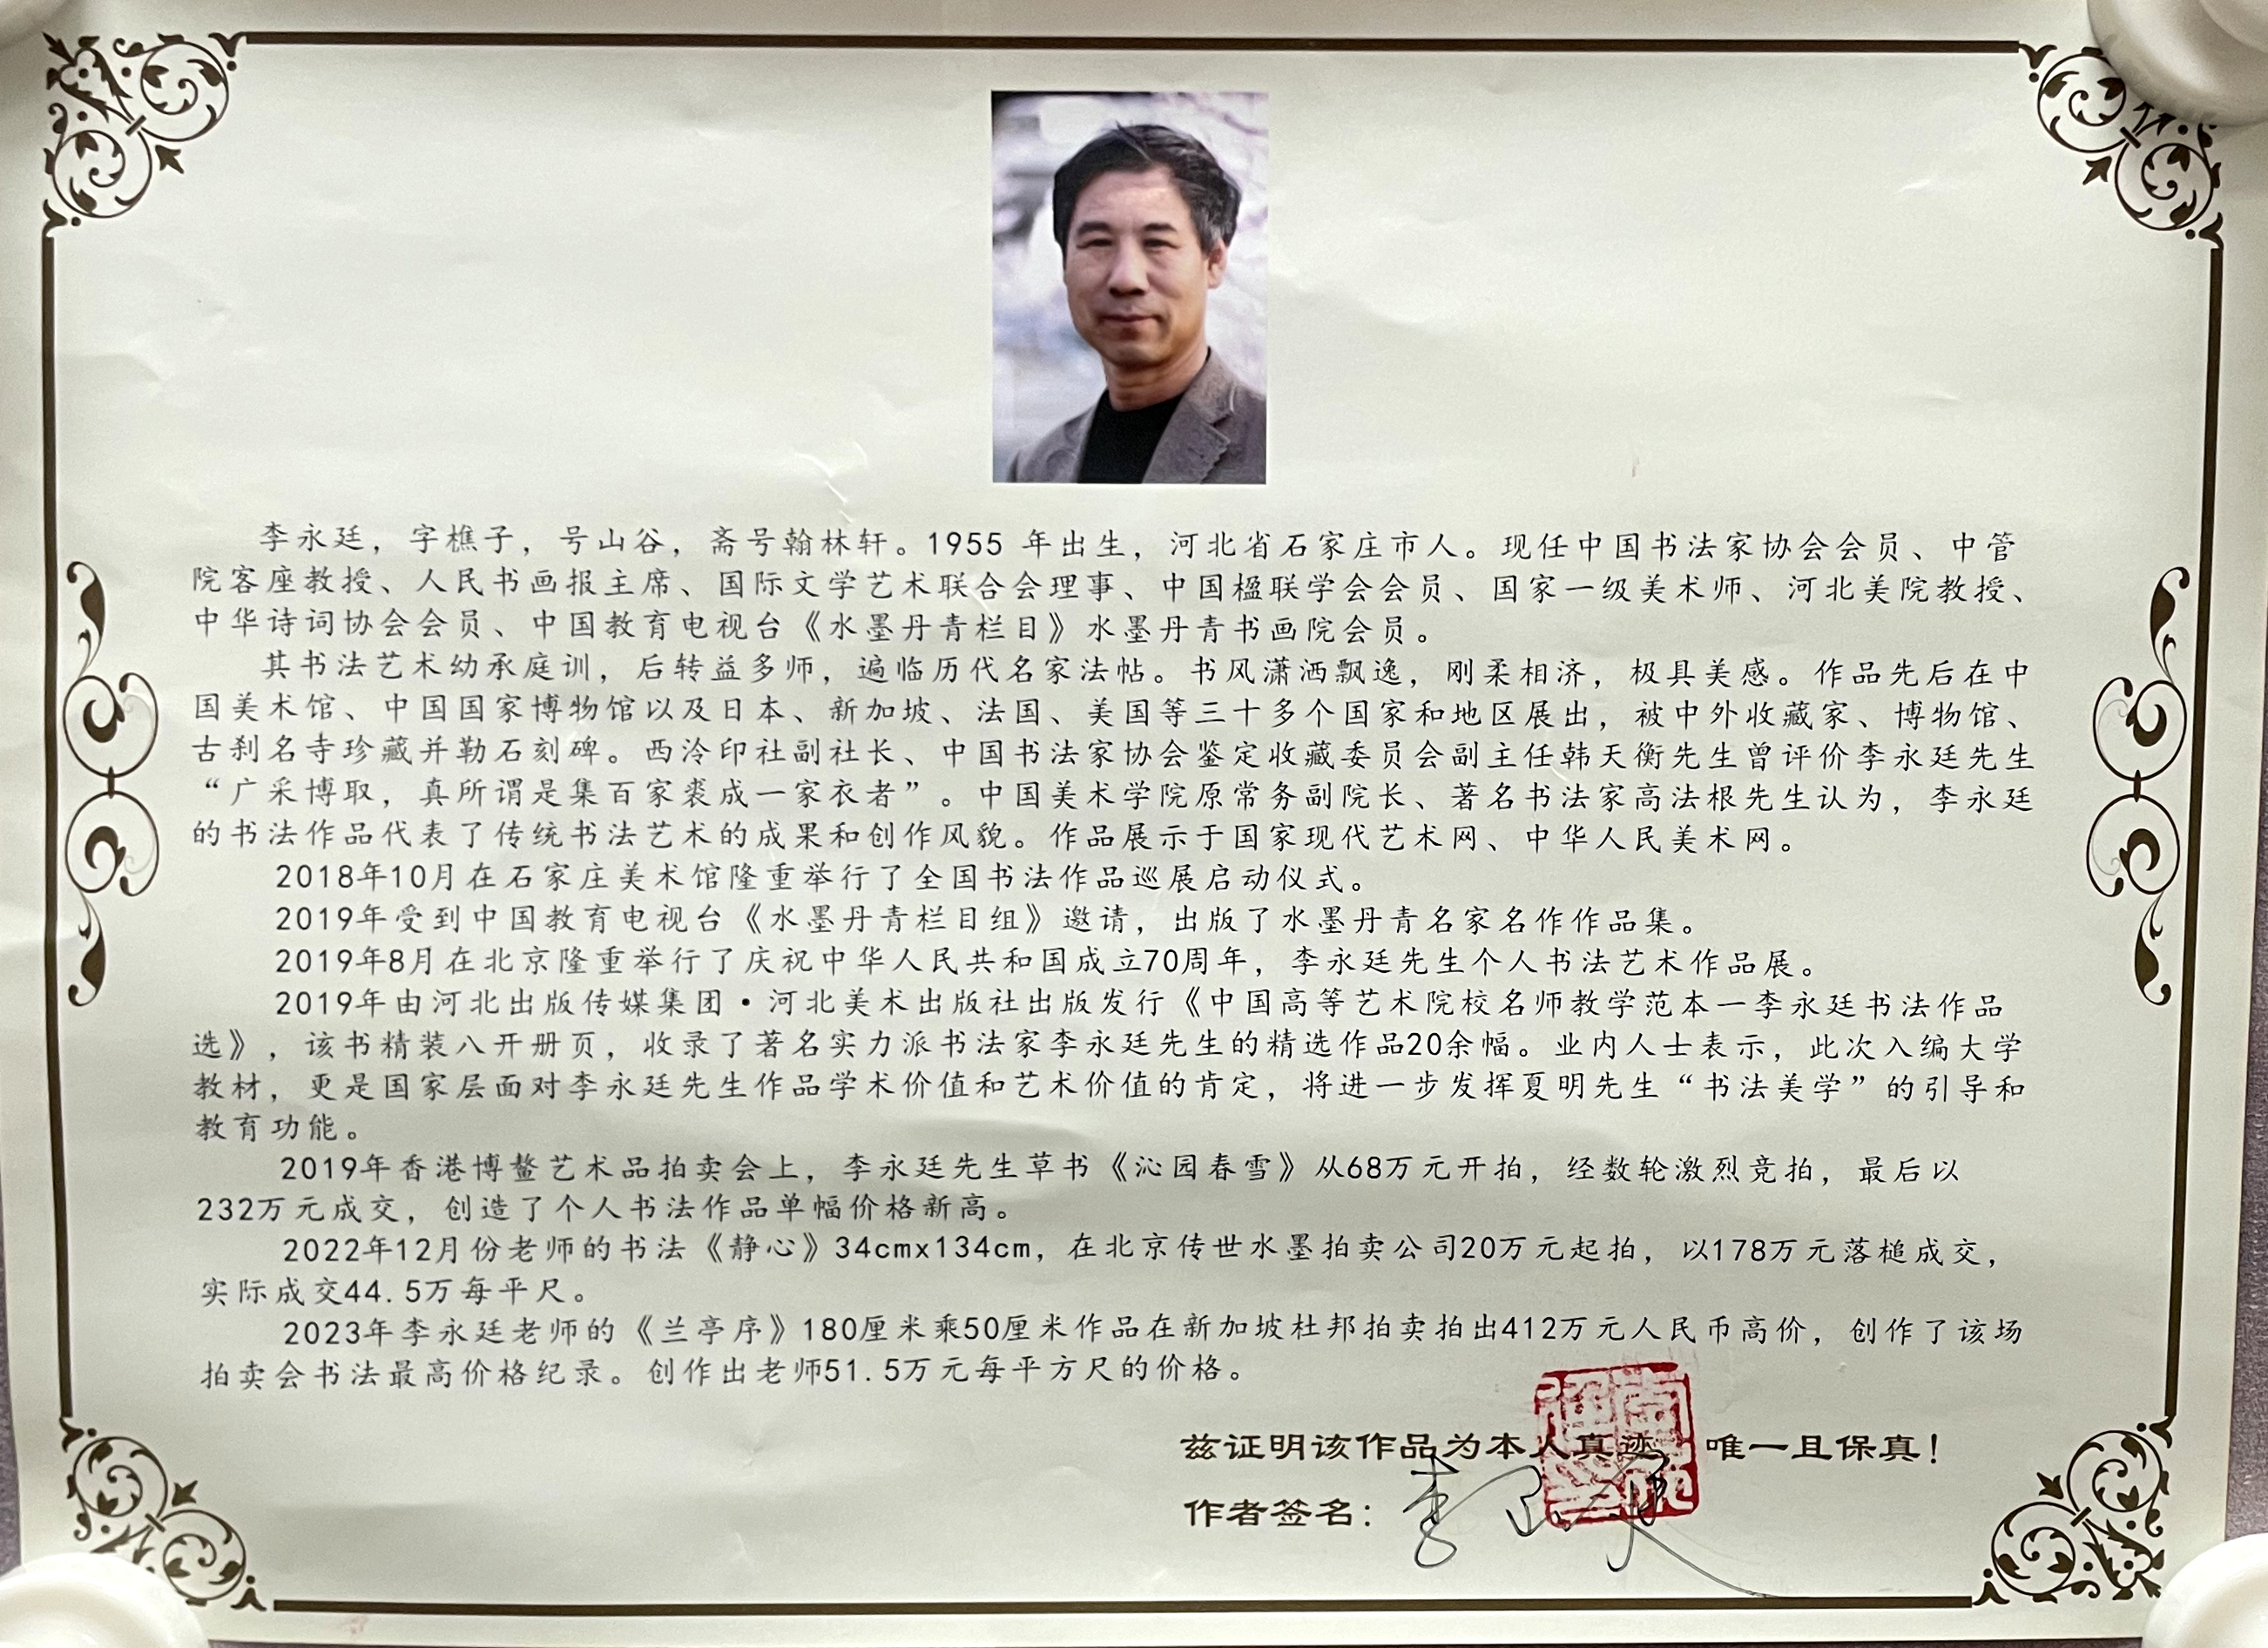 李永廷，字樵子，号山谷，斋号翰林轩。1955 年出生，河北省石家庄市人。现任中国书法家协会会员、中管
院客座教授、人民书画报主席、国际文学艺术联合会理事、中国楹联学会会员、国家一级美术师、河北美院教授、
中华诗词协会会员、中国教育电视台《水墨丹青栏目》水墨丹青书画院会员。
其书法艺术幼承庭训，后转益多师，遍临历代名家法帖。书风潇洒飘逸，刚柔相济，极具美感。作品先后在中
国美术馆、中国国家博物馆以及日本、新加坡、法国、美国等三十多个国家和地区展出，被中外收藏家、博物馆、
古刹名寺珍藏并勒石刻碑。西泠印社副社长、中国书法家协会鉴定收藏委员会副主任韩天衡先生曾评价李永廷先生
“广采博取，真所谓是集百家裘成一家衣者”。中国美术学院原常务副院长、著名书法家高法根先生认为，李永廷
的书法作品代表了传统书法艺术的成果和创作风貌。作品展示于国家现代艺术网、中华人民美术网。
2018年10月在石家庄美术馆隆重举行了全国书法作品巡展启动仪式。
2019年受到中国教育电视台《水墨丹青栏目组》邀请，出版了水墨丹青名家名作作品集。
2019年8月在北京隆重举行了庆祝中华人民共和国成立70周年，李永廷先生个人书法艺术作品展。
2019年由河北出版传媒集团·河北美术出版社出版发行《中国高等艺术院校名师教学范本一李永廷书法作品
选》，该书精装八开册页，收录了著名实力派书法家李永廷先生的精选作品20余幅。业内人士表示，此次入编大学
教材，更是国家层面对李永廷先生作品学术价值和艺术价值的肯定，将进一步发挥夏明先生“书法美学”的引导和
教育功能。
2019年香港博鳌艺术品拍卖会上，李永廷先生草书《沁园春雪》从68万元开拍，经数轮激烈竞拍，最后以
232万元成交，创造了个人书法作品单幅价格新高。
2022年12月份老师的书法《静心》34cmx134cm，在北京传世水墨拍卖公司20万元起拍，以178万元落槌成交，
实际成交44.5万每平尺。
2023年李永廷老师的《兰亭序》180厘米乘50厘米作品在新加坡杜邦拍卖拍出412万元人民币高价，创作了该场
拍卖会书法最高价格纪录。创作出老师51.5万元每平方尺的价格。
兹证明该作品为本人真迹，唯一且保真！
作者签名：李